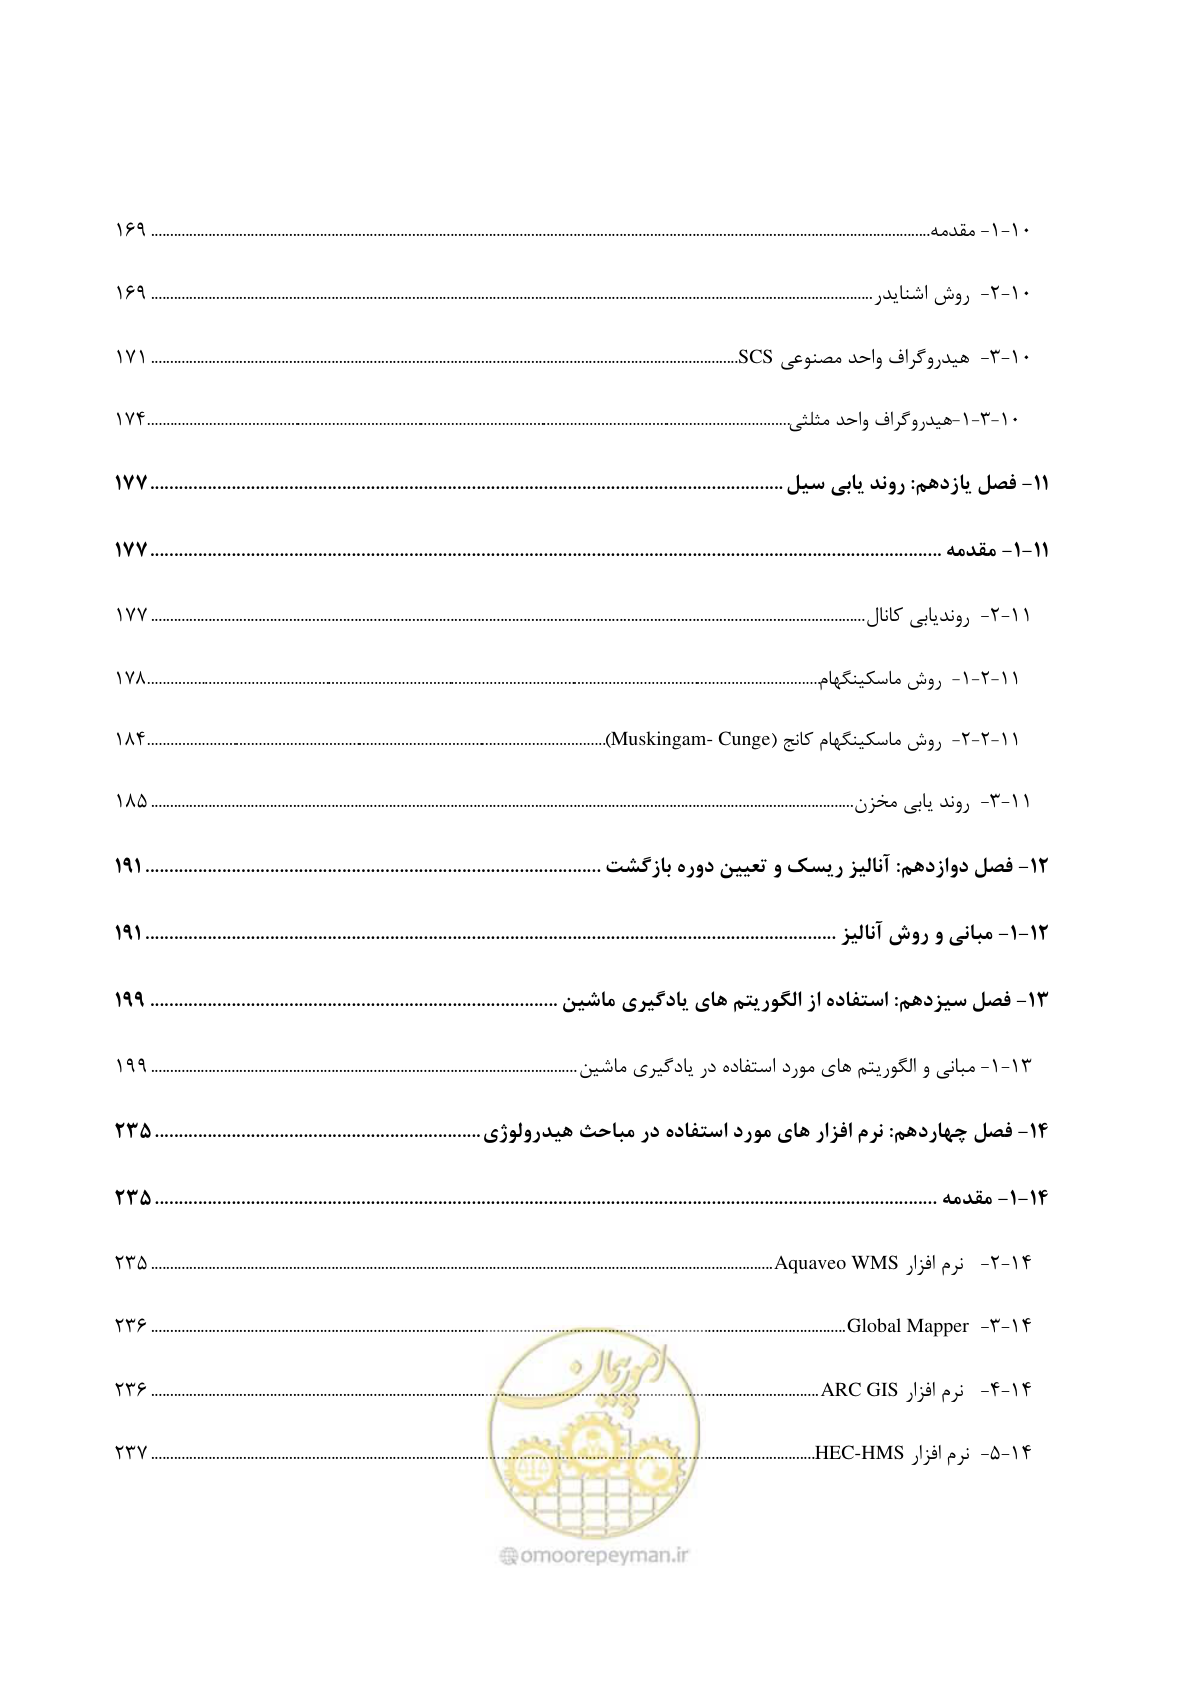 ۱۰-۱- مقدمه ........ ۱۶۹
۱۰-۲- روش اشنایدر ........ ۱۶۹
۱۰-۳- هیدروگراف واحد مصنوعی SCS ........ ۱۷۱
۱۰-۳-۱-هیدروگراف واحد مثلثی ........ ۱۷۴
۱۱- فصل یازدهم: روند یابی سیل ........ ۱۷۷
۱۱-۱- مقدمه ........ ۱۷۷
۱۱-۲- روندیابی کانال ........ ۱۷۷
۱۱-۲-۱- روش ماسکینگهام ........ ۱۷۸
۱۱-۲-۲- روش ماسکینگهام کانج (Muskingam- Cunge) ........ ۱۸۴
۱۱-۳- روند یابی مخزن ........ ۱۸۵
۱۲- فصل دوازدهم: آنالیز ریسک و تعیین دوره بازگشت ........ ۱۹۱
۱۲-۱- مبانی و روش آنالیز ........ ۱۹۱
۱۳- فصل سیزدهم: استفاده از الگوریتم های یادگیری ماشین ........ ۱۹۹
۱۳-۱- مبانی و الگوریتم های مورد استفاده در یادگیری ماشین ........ ۱۹۹
۱۴- فصل چهاردهم: نرم افزار های مورد استفاده در مباحث هیدرولوژی ........ ۲۳۵
۱۴-۱- مقدمه ........ ۲۳۵
۱۴-۲- نرم افزار Aquaveo WMS ........ ۲۳۵
۱۴-۳- Global Mapper ........ ۲۳۶
۱۴-۴- نرم افزار ARC GIS ........ ۲۳۶
۱۴-۵- نرم افزار HEC-HMS ........ ۲۳۷
امور پیمان
omoorepeyman.ir